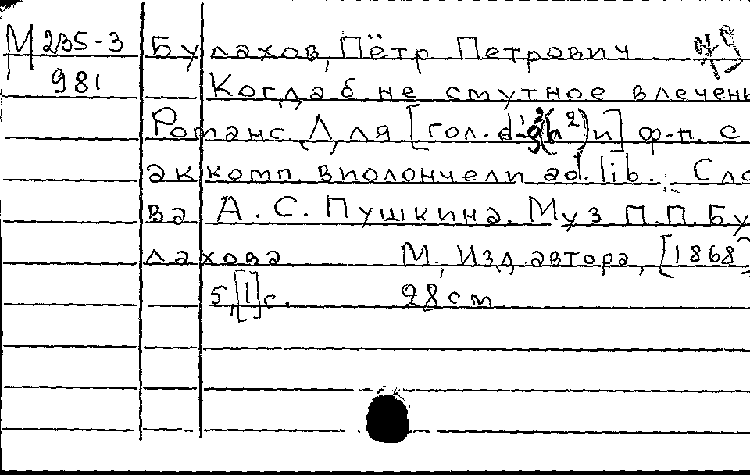 М 235-3 Булахов, Пётр Петрович
981 Когда б не смутное влечень
Романс. Для [гол. (h²) и] ф-п. с
аккомп. виолончели ad. lib. Сло
ва А. С. Пушкина. Муз П. П. Бу
лахова М, Изд. автора, [1868]
5,[1]с. 28 см